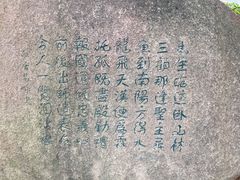 先生晦迹卧山林
三顧那逢聖主尋
魚到南陽方得水
龍飛天漢便為霖
托孤既盡殷勤禮
報國還傾忠義心
前後出師遺表在
令人一覽淚